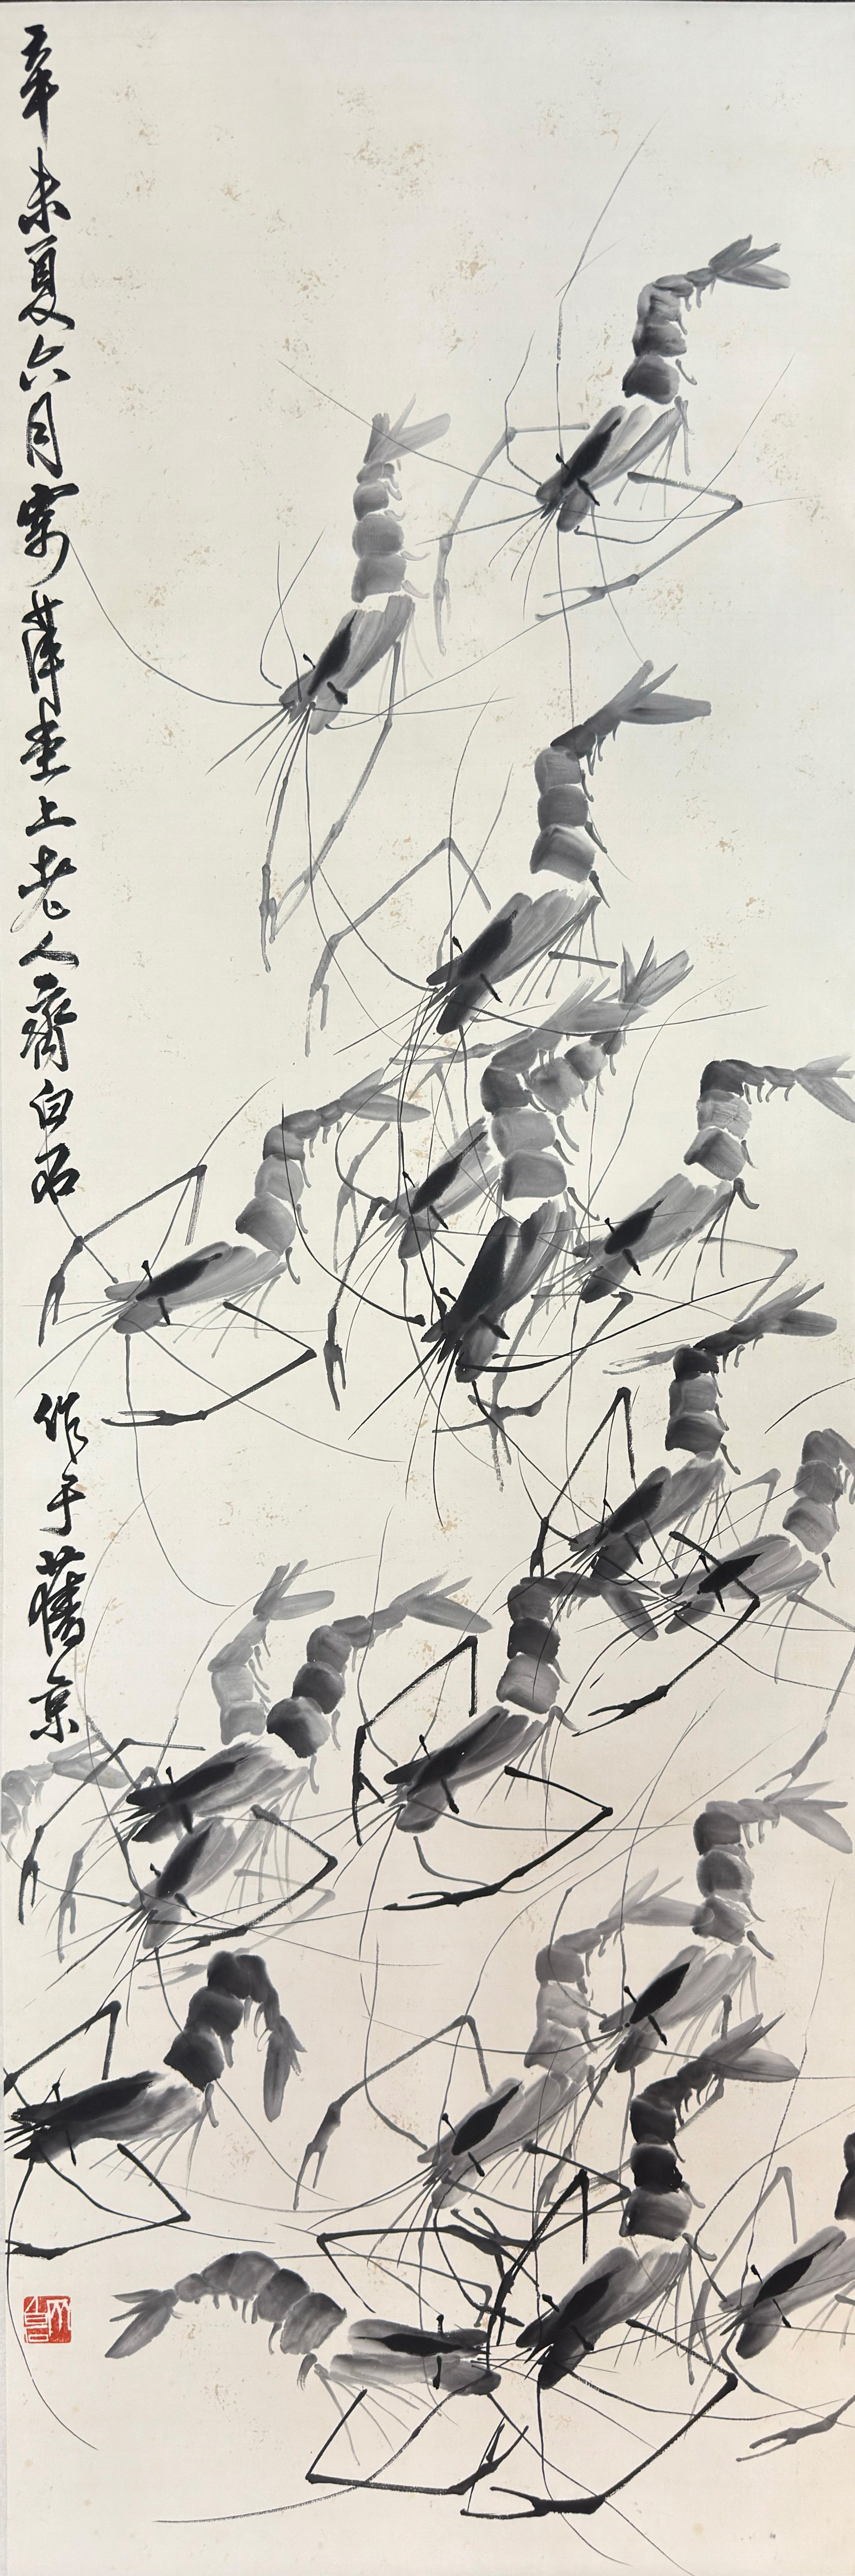 辛未夏六月寄萍堂上老人齊白石 作于舊京